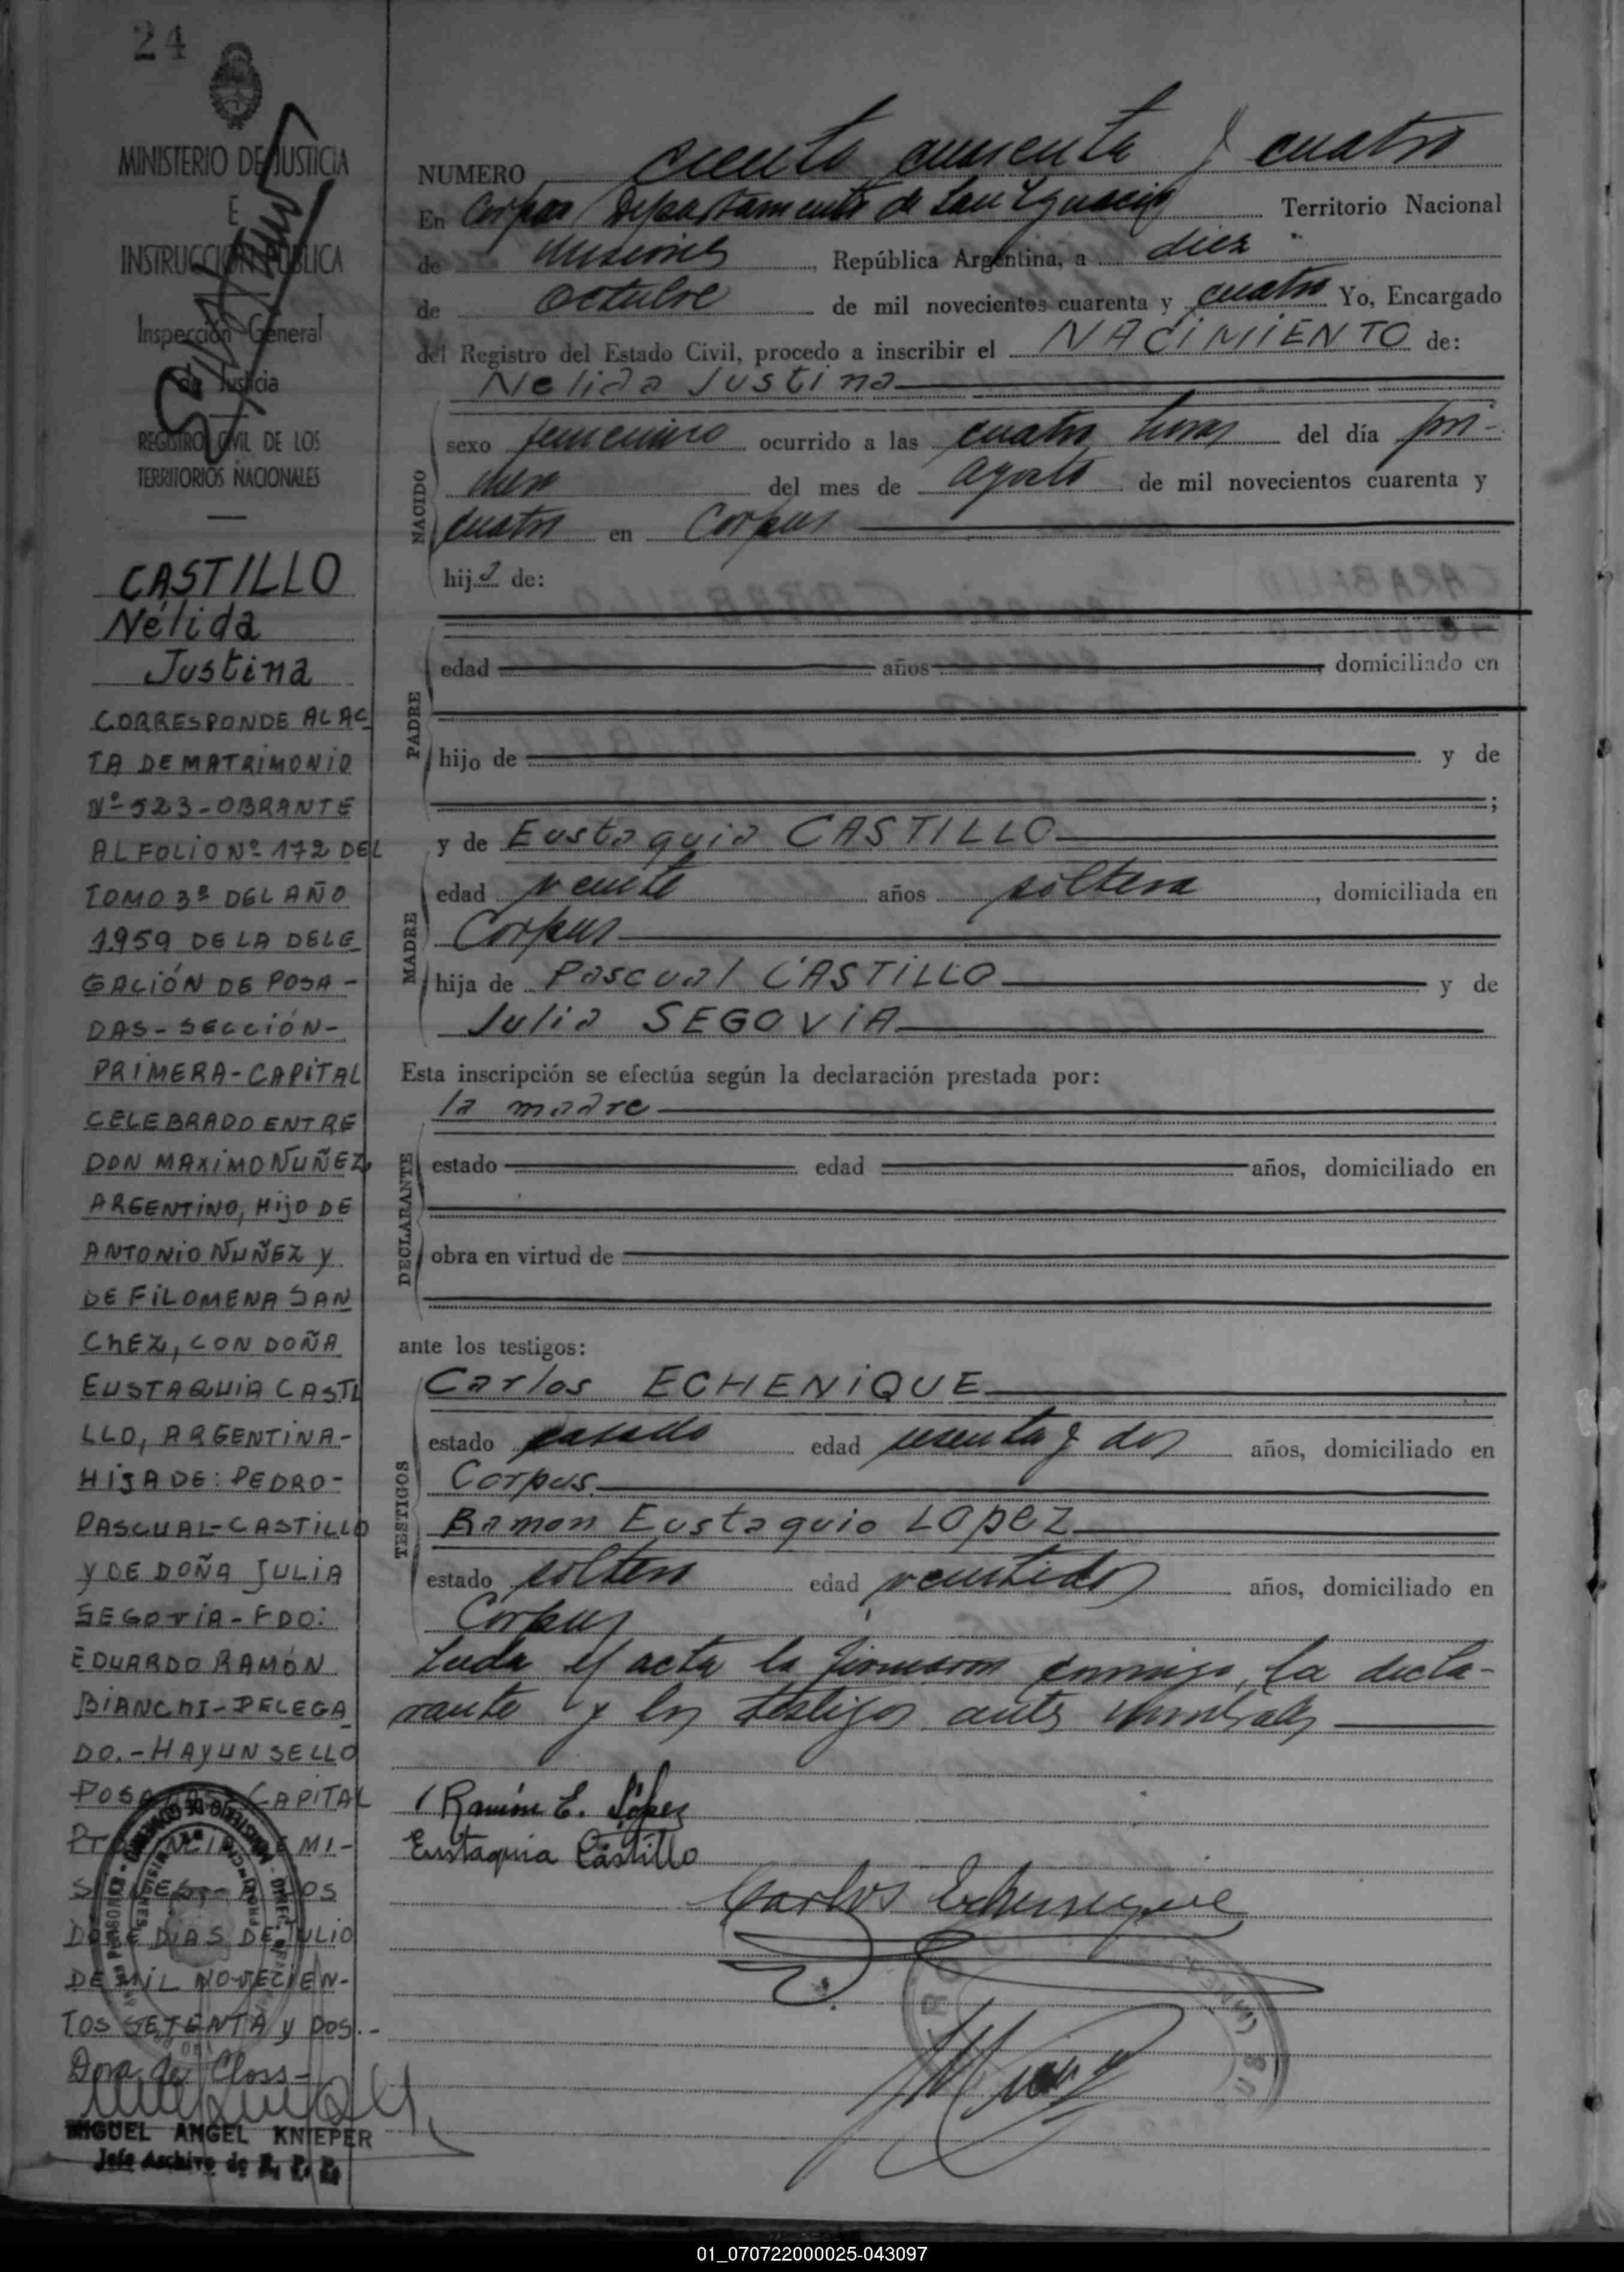 24
MINISTERIO DE JUSTICIA
E
INSTRUCCION PUBLICA
Inspección General
de Justicia
REGISTRO CIVIL DE LOS
TERRITORIOS NACIONALES
CASTILLO
Nélida
Justina
CORRESPONDE AL AC
TA DE MATRIMONIO
Nº 523-OBRANTE
AL FOLIO Nº 172 DEL
TOMO 3º DEL AÑO
1959 DE LA DELE
GACIÓN DE POSA-
DAS-SECCIÓN-
PRIMERA-CAPITAL
CELEBRADO ENTRE
DON MAXIMO NUÑEZ,
ARGENTINO, HIJO DE
ANTONIO NUÑEZ Y
DE FILOMENA SAN
CHEZ, CON DOÑA
EUSTAQUIA CASTI
LLO, ARGENTINA-
HIJA DE: PEDRO-
PASCUAL-CASTILLO
Y DE DOÑA JULIA
SEGOVIA-FDO:
EDUARDO RAMÓN
BIANCHI-DELEGA
DO.-HAY UN SELLO
POSADAS CAPITAL
PROVINCIA DE MI-
SIONES- A LOS
DOCE DIAS DE JULIO
DE MIL NOVECIEN-
TOS SETENTA Y DOS.-
Dora de Closs-
MIGUEL ANGEL KNIEPER
Jefe Archivo de R. P. P.
NUMERO ciento cuarenta y cuatro
En Corpus Departamento de San Ignacio Territorio Nacional
de Misiones, República Argentina, a diez
de octubre de mil novecientos cuarenta y cuatro Yo, Encargado
del Registro del Estado Civil, procedo a inscribir el NACIMIENTO de:
Nelida Justina
NACIDO
sexo femenino ocurrido a las cuatro horas del día pri-
mero del mes de agosto de mil novecientos cuarenta y
cuatro en Corpus
hija de:
PADRE
edad años , domiciliado en
hijo de y de
;
y de Eustaquia CASTILLO
MADRE
edad veinte años soltera, domiciliada en
Corpus
hija de Pascual CASTILLO y de
Julia SEGOVIA
Esta inscripción se efectúa según la declaración prestada por:
la madre
DECLARANTE
estado edad años, domiciliado en
obra en virtud de
ante los testigos:
TESTIGOS
Carlos ECHENIQUE
estado casado edad sesenta y dos años, domiciliado en
Corpus.
Ramon Eustaquio LOPEZ
estado soltero edad veintidos años, domiciliado en
Corpus
Leida el acta la firmaron conmigo, la decla-
rante y los testigos antes nombrados
Ramón E. López
Eustaquia Castillo
Carlos Echenique
01_070722000025-043097